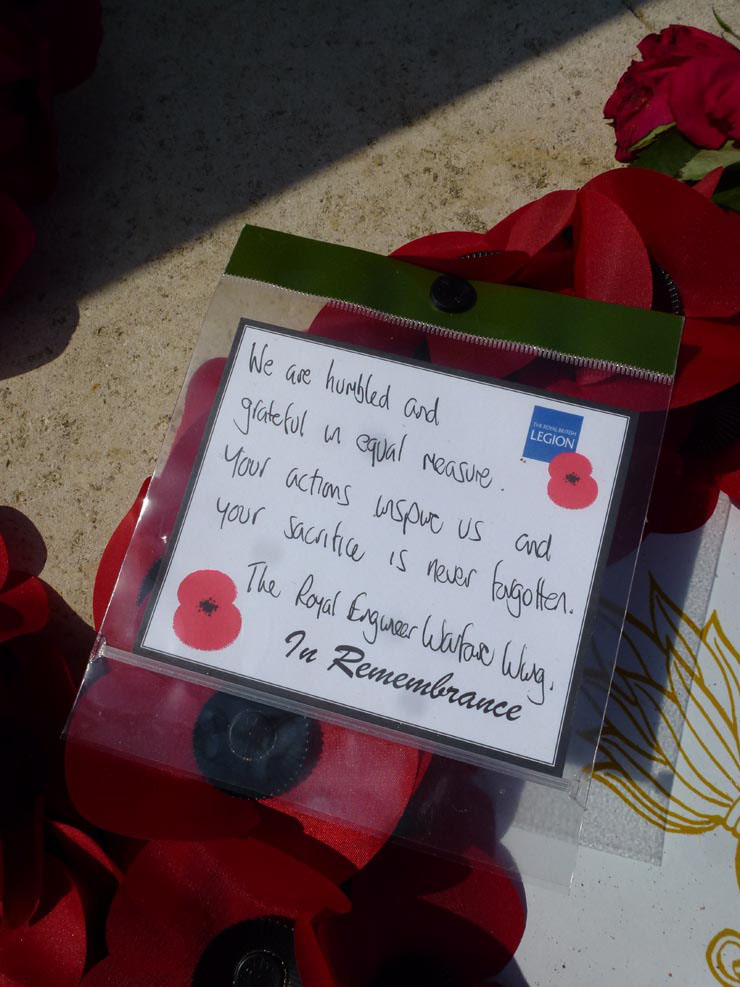 We are humbled and
grateful in equal measure.
THE ROYAL BRITISH
LEGION
Your actions inspire us and
your sacrifice is never forgotten.
The Royal Engineer Warfare Wing.
In Remembrance